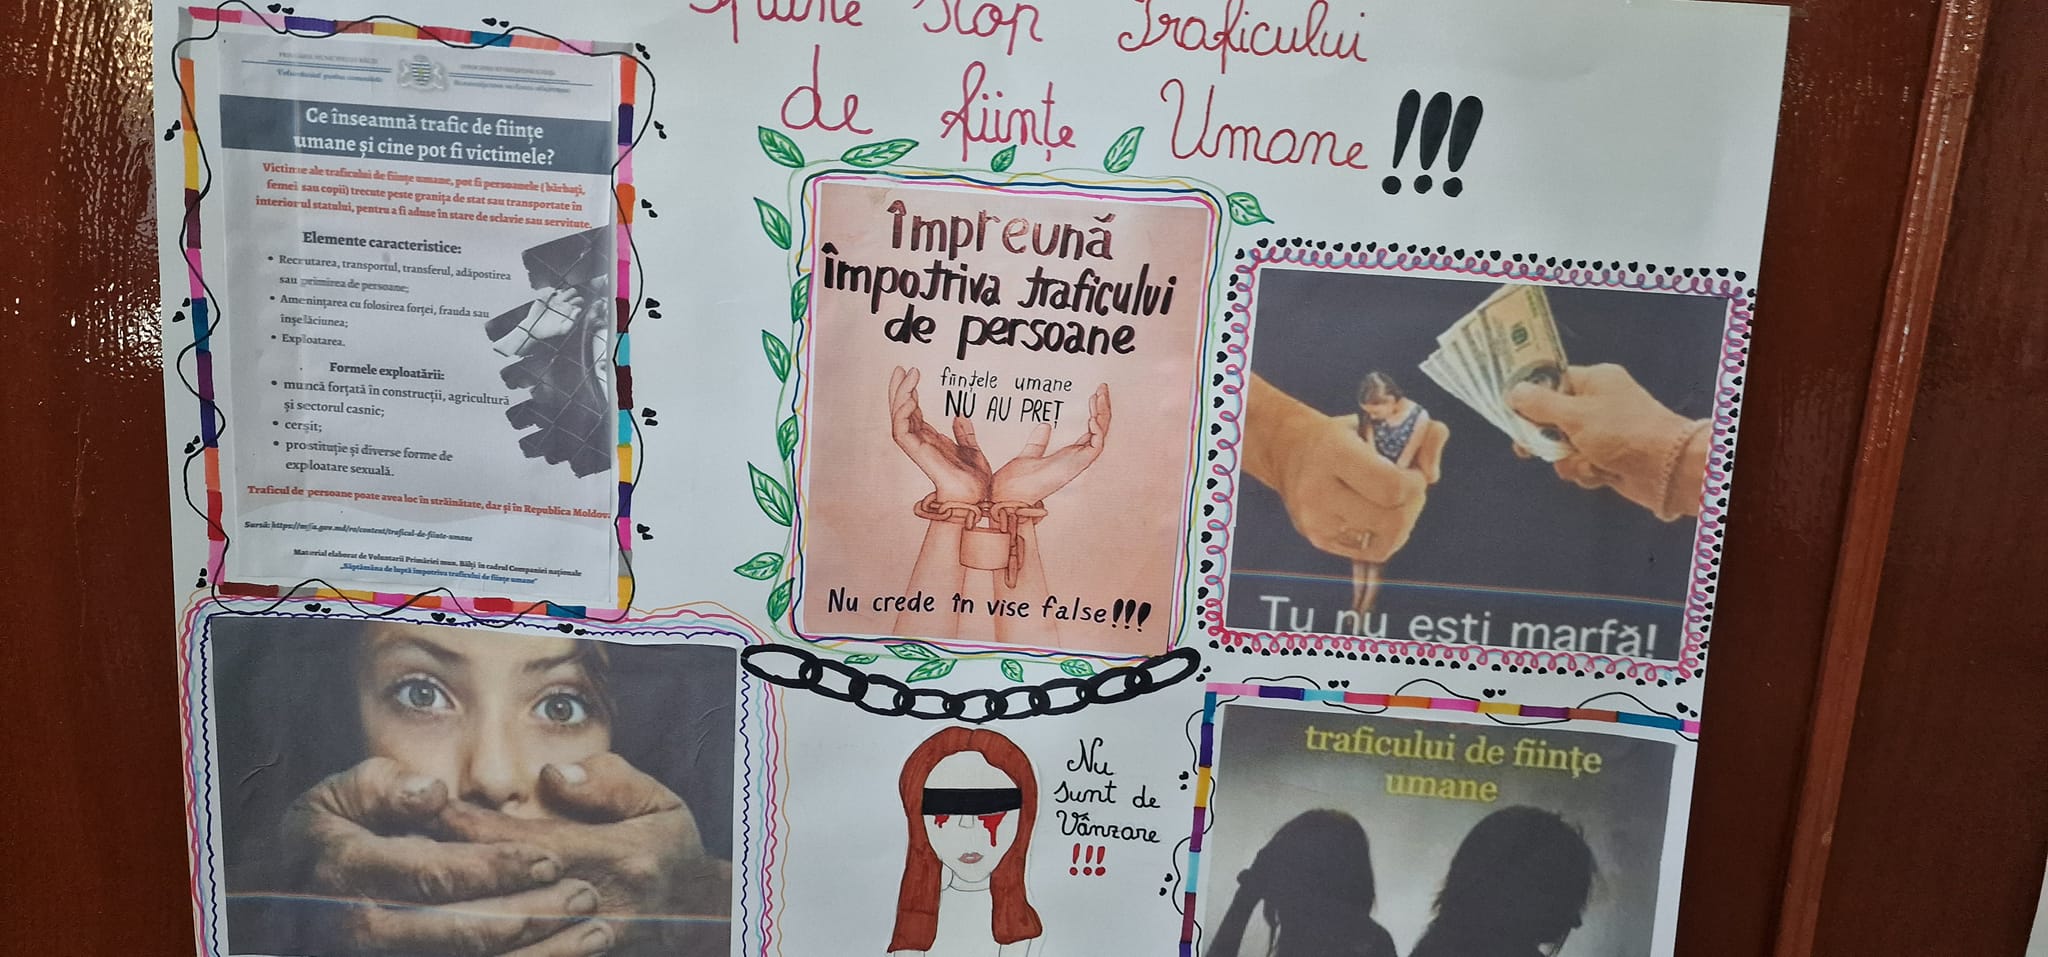 Spune Stop Traficului
de ființe Umane!!!
PRIMĂRIA MUNICIPIULUI BĂLȚI
Ce înseamnă trafic de ființe
umane și cine pot fi victimele?
Victime ale traficului de ființe umane, pot fi persoanele ( bărbați,
femei sau copii) trecute peste granița de stat sau transportate în
interiorul statului, pentru a fi aduse în stare de sclavie sau servitute.
Elemente caracteristice:
• Recrutarea, transportul, transferul, adăpostirea
sau primirea de persoane;
• Amenințarea cu folosirea forței, frauda sau
înșelăciunea;
• Exploatarea.
Formele exploatării:
• muncă forțată în construcții, agricultură
și sectorul casnic;
• cerșit;
• prostituție și diverse forme de
exploatare sexuală.
Traficul de persoane poate avea loc în străinătate, dar și în Republica Moldov
Sursă: https://mfa.gov.md/ro/content/traficul-de-fiinte-umane
Material elaborat de Voluntarii Primăriei mun. Bălți în cadrul Companiei naționale
„Săptămâna de luptă împotriva traficului de ființe umane"
Împreună
împotriva traficului
de persoane
ființele umane
NU AU PREȚ
Nu crede în vise false!!!
Tu nu ești marfă!
Nu
sunt de
Vânzare
!!!
traficului de ființe
umane